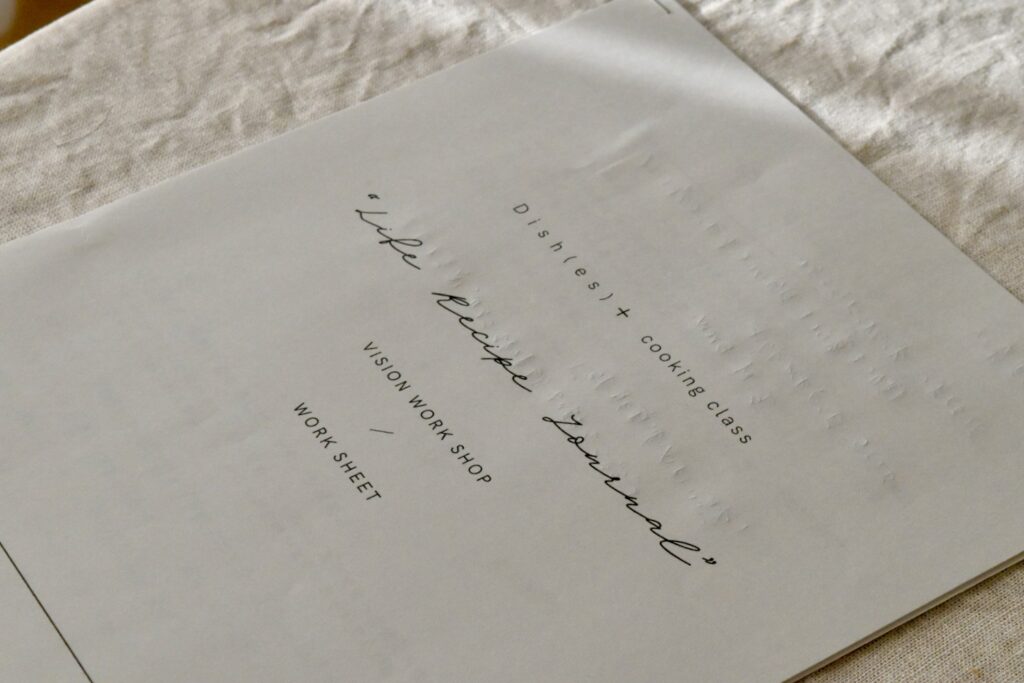 Dish(es)+ cooking class
"Life Recipe Journal"
VISION WORK SHOP
/
WORK SHEET